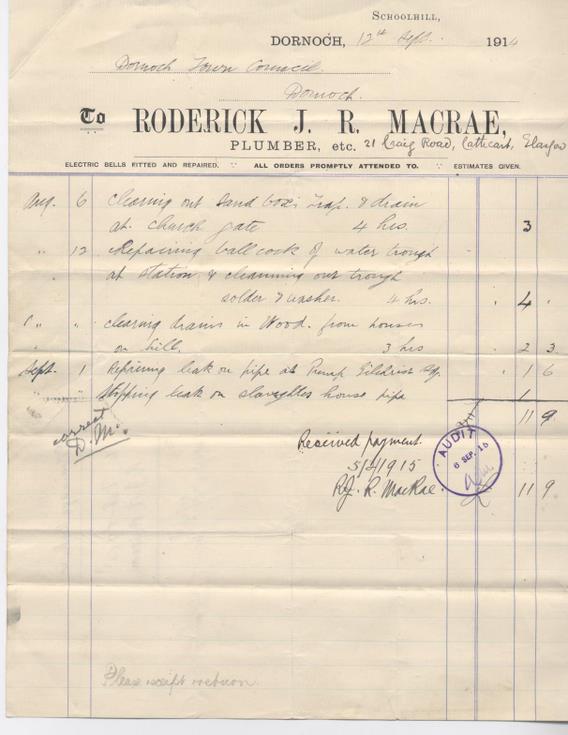 SCHOOLHILL,
DORNOCH, 12th Sept. 1914
Dornoch Town Council.
Dornoch.
To RODERICK J. R. MACRAE,
PLUMBER, etc. 21 Craig Road, Cathcart, Glasgow
ELECTRIC BELLS FITTED AND REPAIRED. ALL ORDERS PROMPTLY ATTENDED TO. ESTIMATES GIVEN.
Aug. 6 clearing out sand box, Trap. & drain
at church gate 4 hrs. 3
" 12 Repairing ball cock of water trough
at station & cleanning out trough
solder & washer. 4 hrs. 4
" " clearing drains in Wood. from houses
on hill. 3 hrs 2 3
Sept. 1 Repairing leak on pipe at Pump Gilchrist Sq. 1 6
Stopping leak on slaughter house pipe 1
11 9
correct
D. M.
Received payment.
5/2/1915
R.J. R. MacRae. 11 9
AUDIT
6 SEP. 15
Please receipt & return